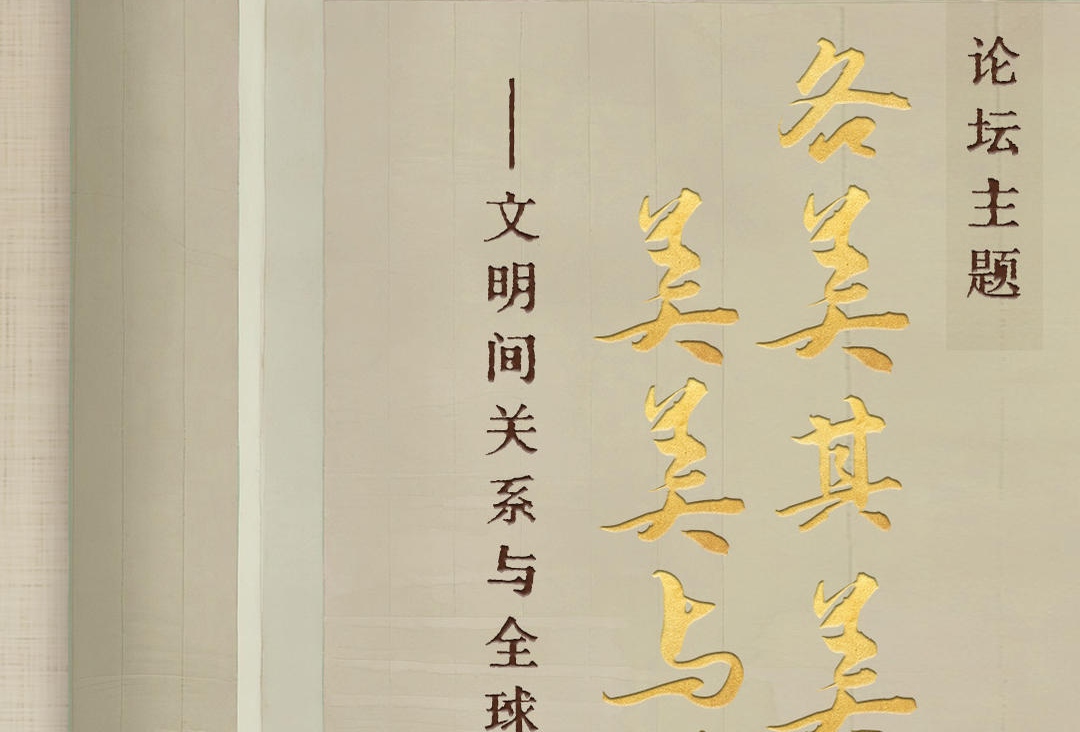 论坛主题
各美其美
美美与
——文明间关系与全球